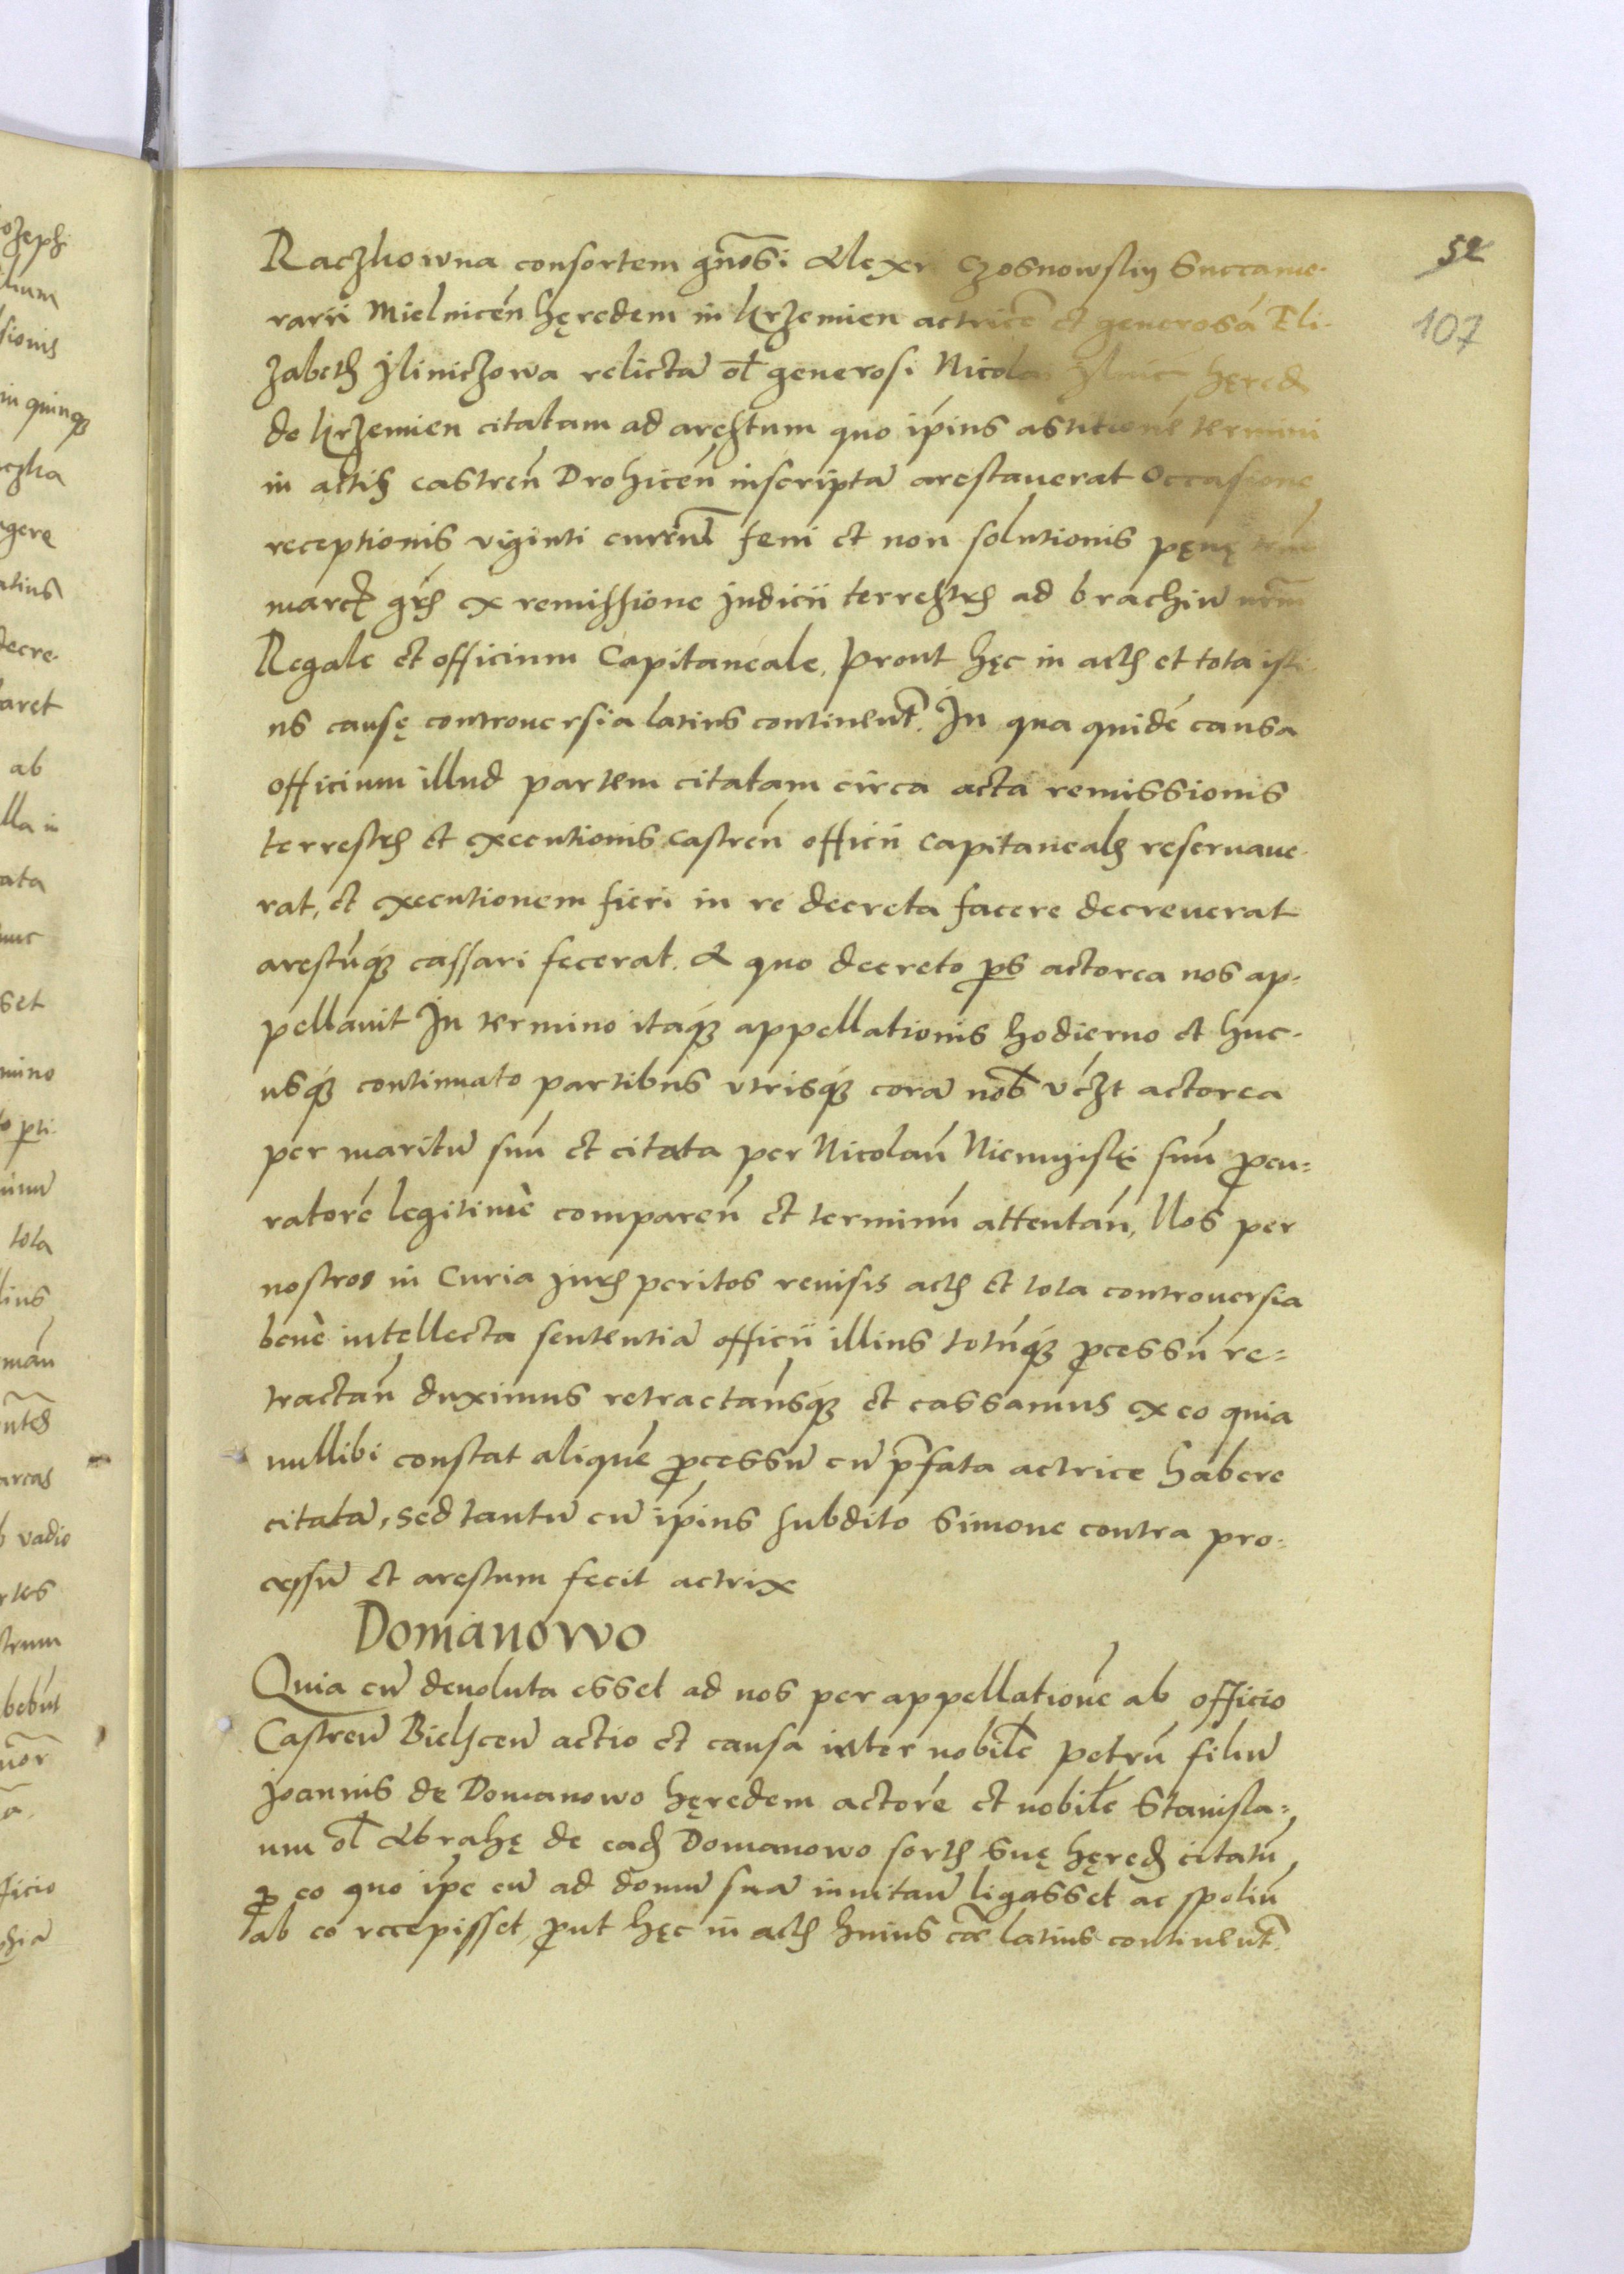 52
107
Raczkowna consortem gn̄osi Alexr Czosnowskij Succame-
rarii Mielnicen̄ hęredem in Krzemien actricē et generosā Eli-
zabeth Jliniczowa relictā ol̄ generosi Nicolai Jlinic hęred
de Krzemien citatam ad arestum quo ip̄ius astitionē termini
in actis castren̄ Drohicen̄ inscriptā arestauerat Occasione
receptionis viginti currūm feni et non solutionis pęnę
marcas gr̄is ex remissione Judicii terrestris ad brachiū nr̄m
Regale et officium Capitaneale, prout hęc in actis et tota isti-
us causę controuersia latius continent̄. In qua quidē causa
officium illud partem citatam circa acta remissionis
terrestris et executionis castren̄ officii capitanealis reseruaue-
rat, et executionem fieri in re decreta facere decreuerat
arestūq; cassari fecerat. A quo decreto ps actorea nos ap-
pellauit In termino itaq; appellationis hodierno et huc-
usq; continuato partibus vtrisq; corā nob̄ vczt actorea
per maritū suū et citata per Nicolaū Niemyiski suū procu-
ratorē legitimè comparen̄ et terminū attentan̄, Nos per
nostros in Curia juris peritos reuisis actis et tota controuersia
benè intellecta sententiā officii illius totūq; processū re-
tractan̄ duximus retractam̄sq; et cassamus ex eo quia
nullibi constat aliquē processū cū prefata actrice habere
citatā, sed tantū cū ip̄ius subdito Simone contra pro-
cessū et arestum fecit actrix
Domanowo
Quia cū deuoluta esset ad nos per appellationē ab officio
Castren̄ Bielscen̄ actio et causa inter nobilē Petrū filiū
Joannis de Domanowo hęredem actorē et nobilē Stanisla-
um ol̄ Abrahę de ead Domanowo sortis suę hęred citatū,
pro eo quo ip̄e eū ad domū suā inuitan̄ ligasset ac spoliū
ab eo recepisset, prout hęc in actis huius cæ latius continent̄.